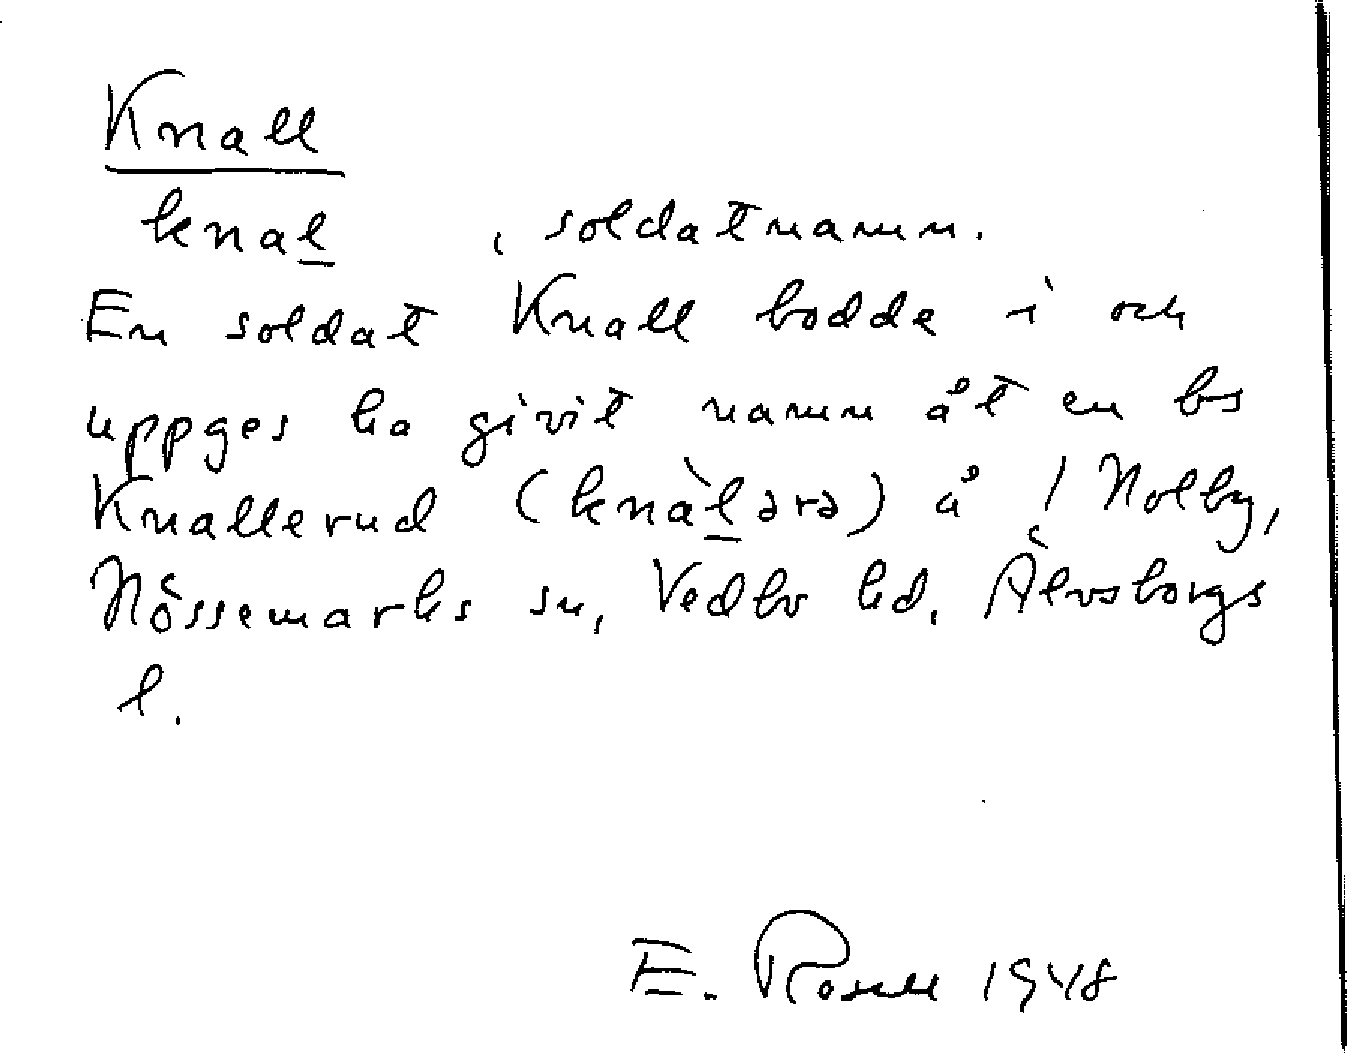 Knall
knal , soldatnamn.
En soldat Knall bodde i och
uppges ha givit namn åt en bs
Knallerud (knàlərə) å 1 Nolby,
Nössemarks sn, Vedbo hd, Älvsborgs
l.
E. Rosell 1948